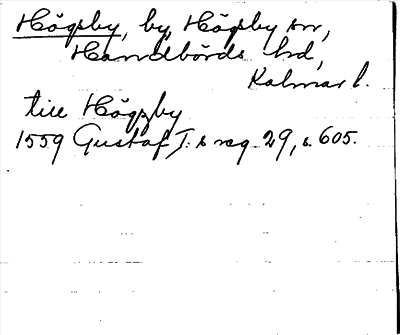 Högsby, by, Högsby sn,
Handbörds hd,
Kalmar l.
till Högzby
1559 Gustaf I:s reg. 29, s. 605.